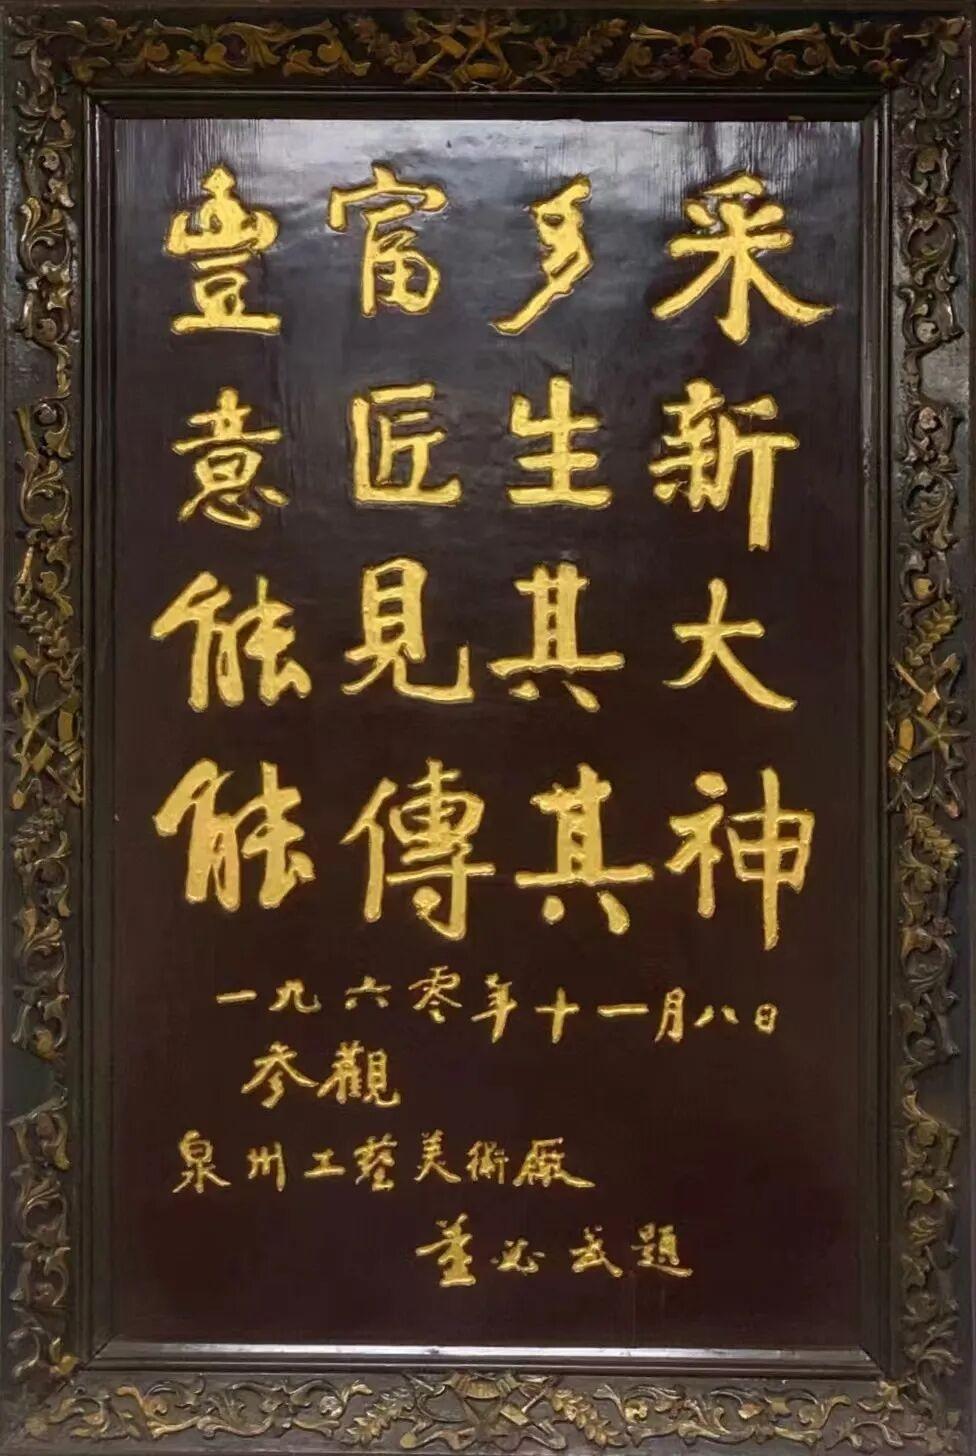 豐富多采
意匠生新
能見其大
能傳其神
一九六零年十一月八日
参觀
泉州工藝美術廠
董必武題